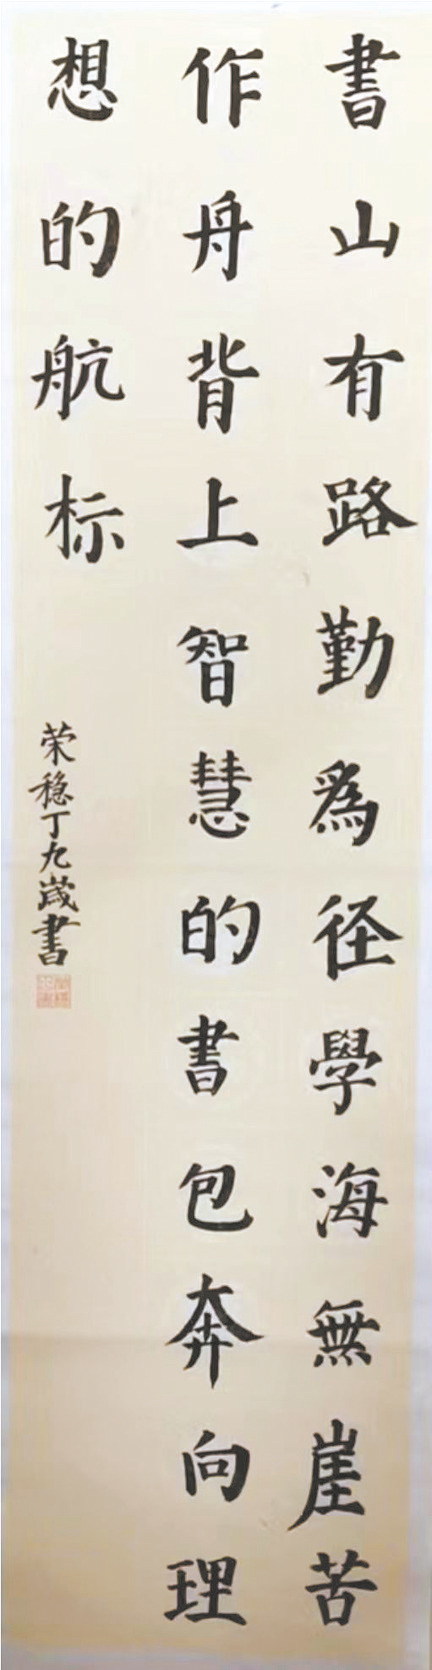 書山有路勤為径學海無崖苦
作舟背上智慧的書包奔向理
想的航标
荣稳丁九歲書